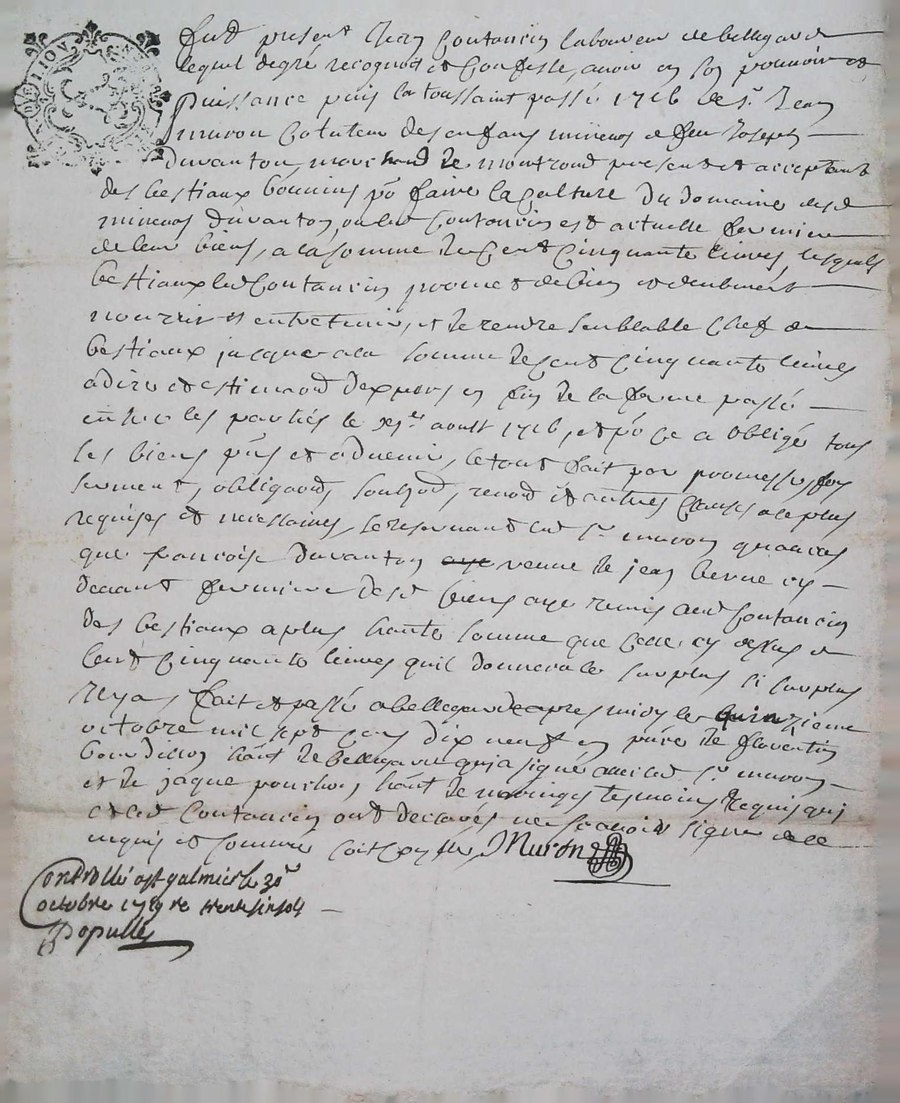 fut present Jean Coutancin laboureur de bellegarde
lequel degré recognoit et Confesse, avoir en son pouvoir et
Puissance puis la toussaint passé 1716 de sr. Jean
muron Cotuteur des enfans mineurs de feu Joseph
duvanton, marchand de montrond present et acceptant
des bestiaux bouvins po faire la Culture du domaine desd
mineurs duvanton, ou led Coutancin est actuelle fermier
de leur biens, a la somme de Cent Cinquante livres, lesquels
bestiaux led Coutancin promet de bien et deubment
nourrir et entretenir, et de rendre semblable Chef de
bestiaux jacque a la somme de Cent Cinquante livres
a dire et estimaon dexpers en fin de la ferme passé
entre les parties le aoust 1716, et po ce a obligé tous
ses biens pns et advenir, le tout fait par promesses, foy
serment, obligaons, soubzon, renon et autres Clauses a ce plus
requises et necessaires, se reservant led sr muron quau cas
que francoise duvanton veuve de jean berne cy
devant fermiere desd biens aye remis aud Coutancin
des bestiaux a plus haute somme que Celle cy dessus de
Cent Cinquante livres quil donnera le surplus si surplus
il y a, fait et passé a bellegarde apres midy le quinzieme
octobre mil sept cens dix neuf en pnce de florentin
bourdillon hant de bellegarde qui a signé avec led sr muron
et de jaque ponchon hant de maringes tesmoins Requis qui
et led Coutancin ont declarés ne scavoir signer de ce
enquis et sommés Muron
Controllé a st galmier le 30e
octobre 1719 re trente six sols
Populle